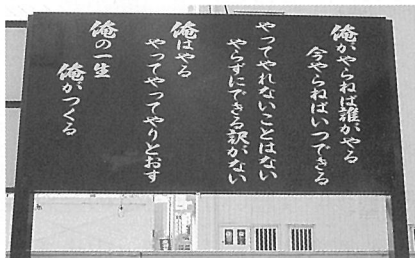 俺がやらねば誰がやる
今やらねばいつできる
やってやれないことはない
やらずにできる訳がない
俺はやる
やってやってやりとおす
俺の一生
俺がつくる